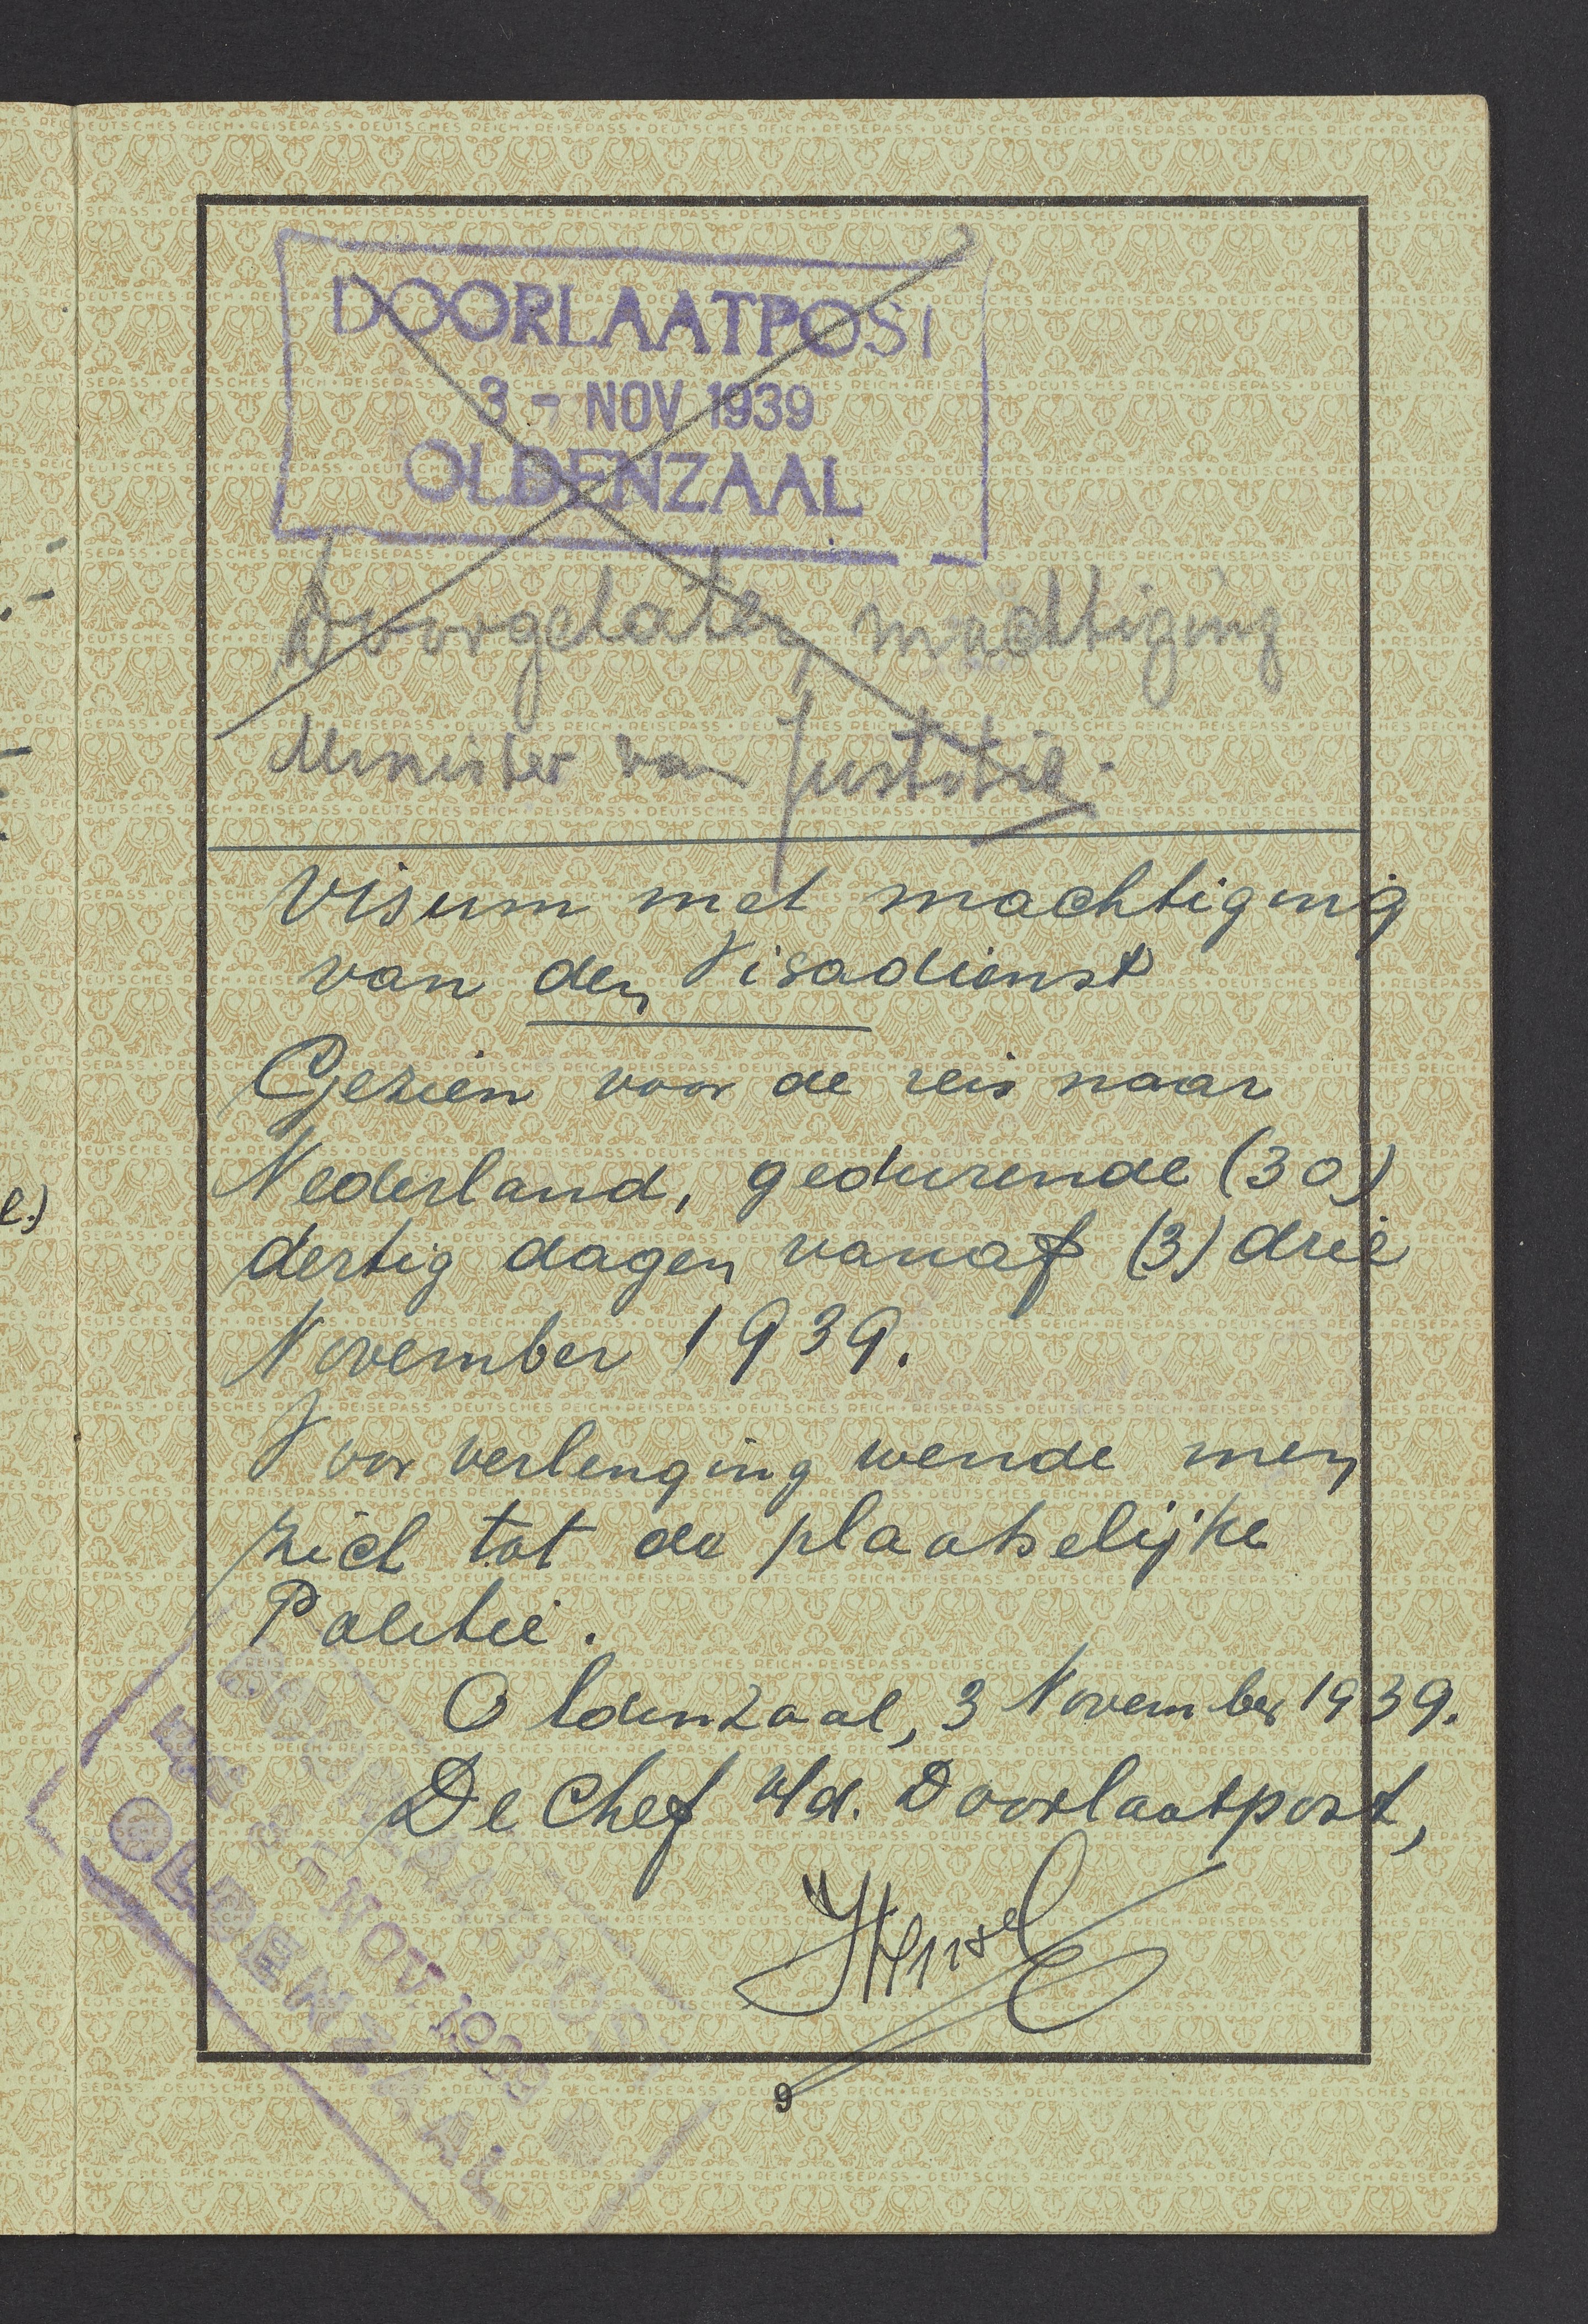 DOORLAATPOST
3 - NOV 1939
OLDENZAAL
Doorgelaten machtiging
Minister van Justitie.
Visum met machtiging
van den Visadienst
Gezien voor de reis naar
Nederland, gedurende (30)
dertig dagen vanaf (3) drie
November 1939.
Voor verlenging wende men
zich tot de plaatselijke
Politie.
Oldenzaal, 3 November 1939.
De Chef v/d. Doorlaatpost,
DOORLAATPOST
3 - NOV 1939
OLDENZAAL
9